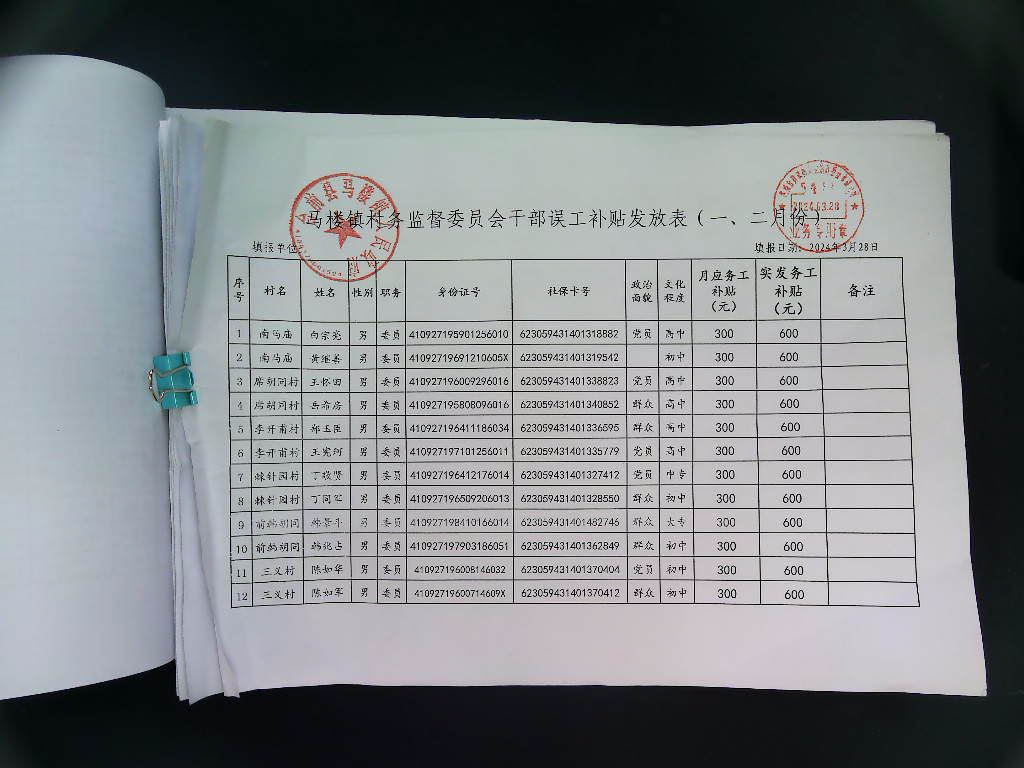 马楼镇村务监督委员会干部误工补贴发放表（一、二月份）
填报单位
填报日期：2024年3月28日
序号 村名 姓名 性别 职务 身份证号 社保卡号 政治面貌 文化程度 月应务工补贴（元） 实发务工补贴（元） 备注
1 南马庙 男 委员 410927195901256010 623059431401318882 党员 高中 300 600
2 南马庙 黄继善 男 委员 41092719691210605X 623059431401319542 初中 300 600
3 席胡同村 王怀田 男 委员 410927196009296016 623059431401338823 党员 高中 300 600
4 席胡同村 岳希房 男 委员 410927195808096016 623059431401340852 群众 高中 300 600
5 李开甫村 郑玉臣 男 委员 410927196411186034 623059431401336595 群众 高中 300 600
6 李开甫村 王宪河 男 委员 410927197101256011 623059431401335779 党员 高中 300 600
7 棘针园村 丁敬贤 男 委员 410927196412176014 623059431401327412 党员 中专 300 600
8 棘针园村 丁同军 男 委员 410927196509206013 623059431401328550 群众 初中 300 600
9 前韩胡同 韩景斗 男 委员 410927198410166014 623059431401482746 群众 大专 300 600
10 前韩胡同 韩兆占 男 委员 410927197903186051 623059431401362849 群众 初中 300 600
11 三义村 陈如华 男 委员 410927196008146032 623059431401370404 党员 初中 300 600
12 三义村 陈如军 男 委员 41092719600714609X 623059431401370412 群众 初中 300 600
2024.03.28
业务专用章